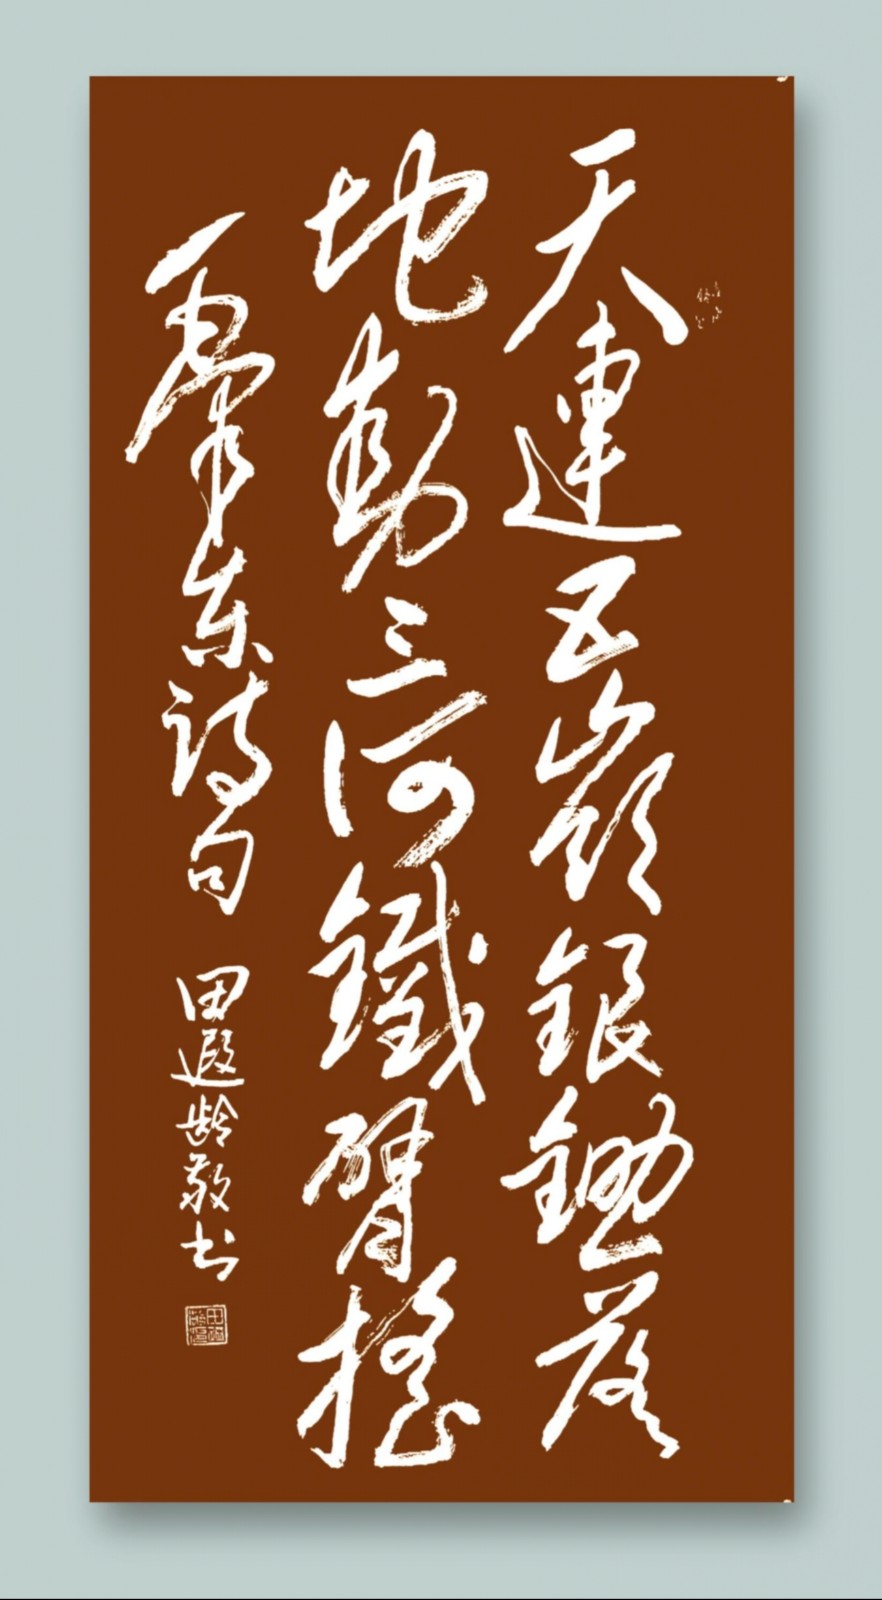 天連五嶺銀鋤落
地動三河鐵臂搖
毛澤东詩句
田遐龄敬书